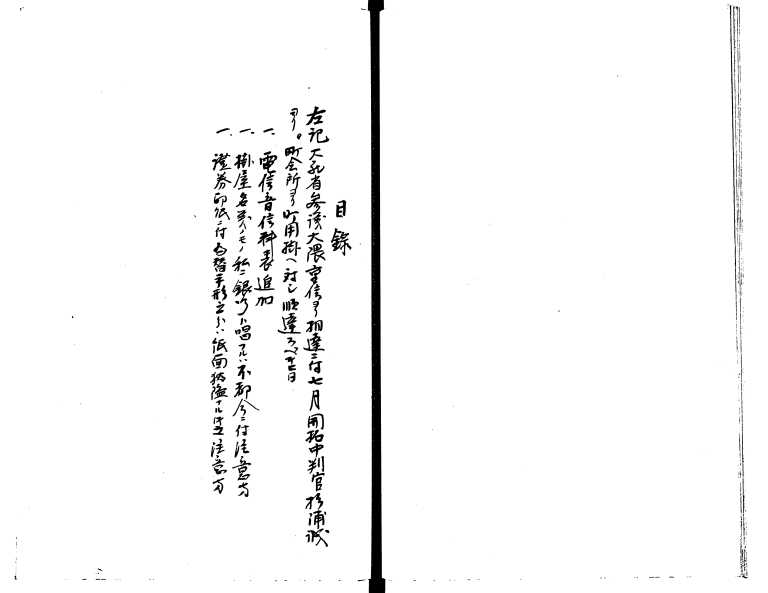 目録
左記大蔵省参議大隈重信ヨリ相達ニ付七月開拓中判官杉浦誠
ヨリ。町会所ヨリ町用掛ヘ対シ順達スベキ
一、電信音信料表追加
一、掛屋名義ノモノ私ニ銀行ト唱フルハ不都合ニ付注意方
一、證券印紙ニ付為替手形立ハ紙面狭隘ナル注意方